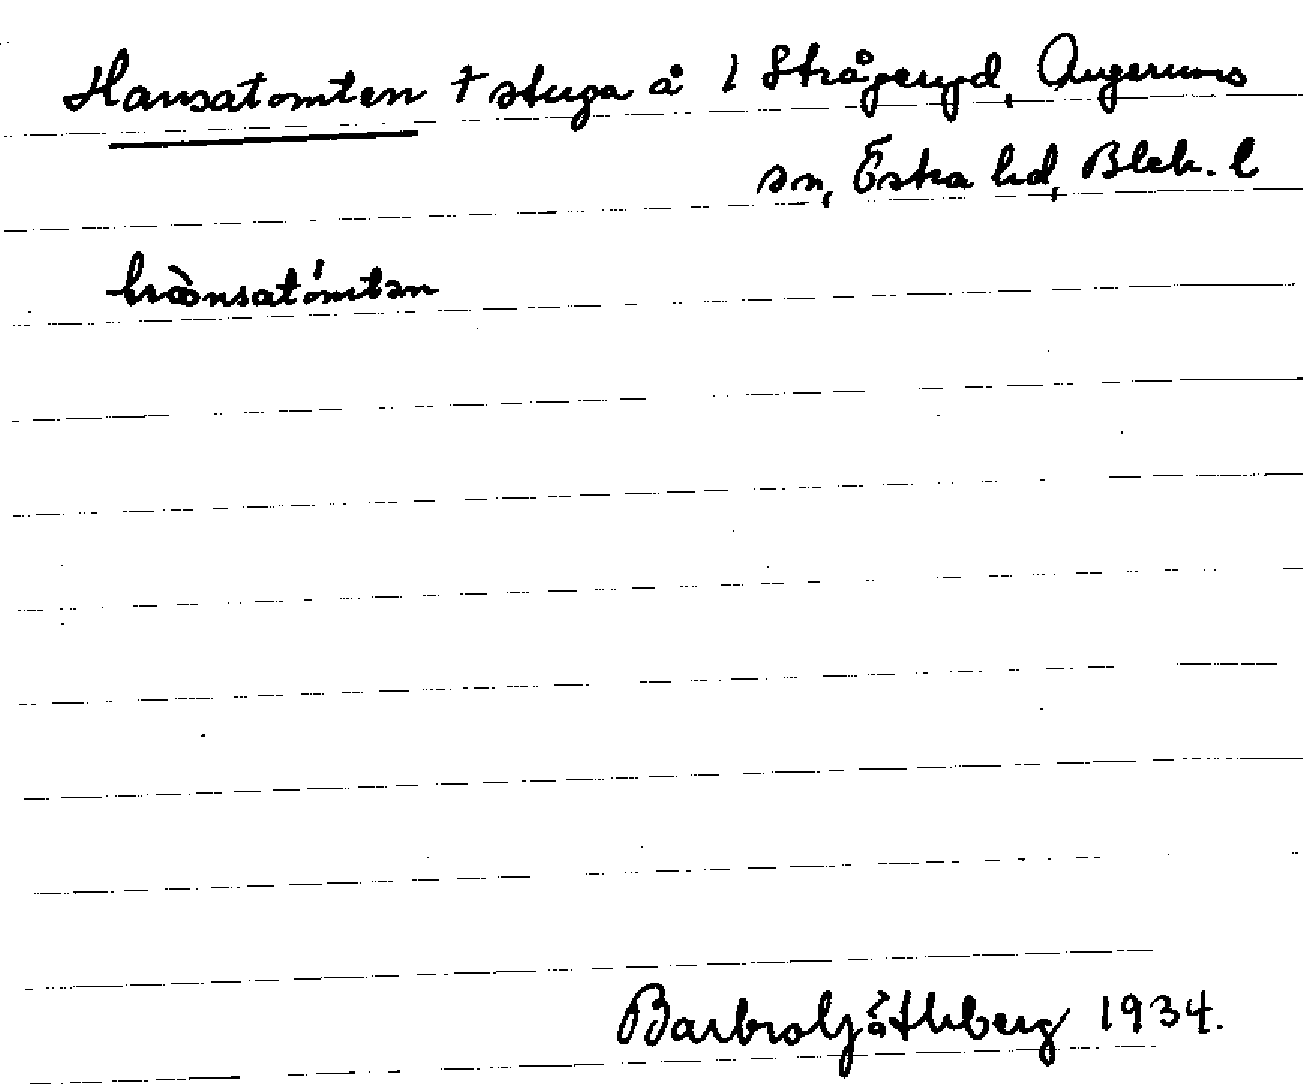 Hansatomten † stuga å 1 Strågeryd, Augerums
sn, Östra hd, Blek. l
hànsatómtən
Barbro Göthberg 1934.